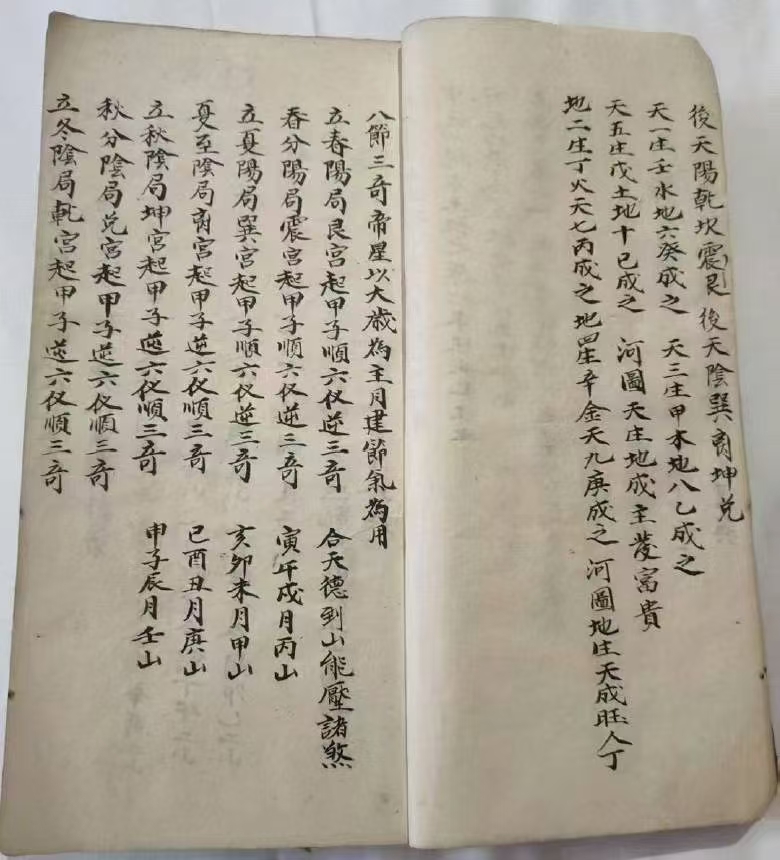 後天陽乾坎震艮 後天陰巽离坤兌
天一生壬水地六癸成之 天三生甲木地八乙成之
天五生戊土地十已成之 河圖天生地成主發富貴
地二生丁火天七丙成之地四生辛金天九庚成之 河圖地生天成旺人丁
八節三奇帝星以大歲為主月建節氣為用
立春陽局艮宮起甲子順六仪逆三奇 合天德到山能壓諸煞
春分陽局震宮起甲子順六仪逆三奇 寅午戌月丙山
立夏陽局巽宮起甲子順六仪逆三奇 亥卯未月甲山
夏至陰局离宮起甲子逆六仪順三奇 已酉丑月庚山
立秋陰局坤宮起甲子逆六仪順三奇 申子辰月壬山
秋分陰局兌宮起甲子逆六仪順三奇
立冬陰局乾宮起甲子逆六仪順三奇